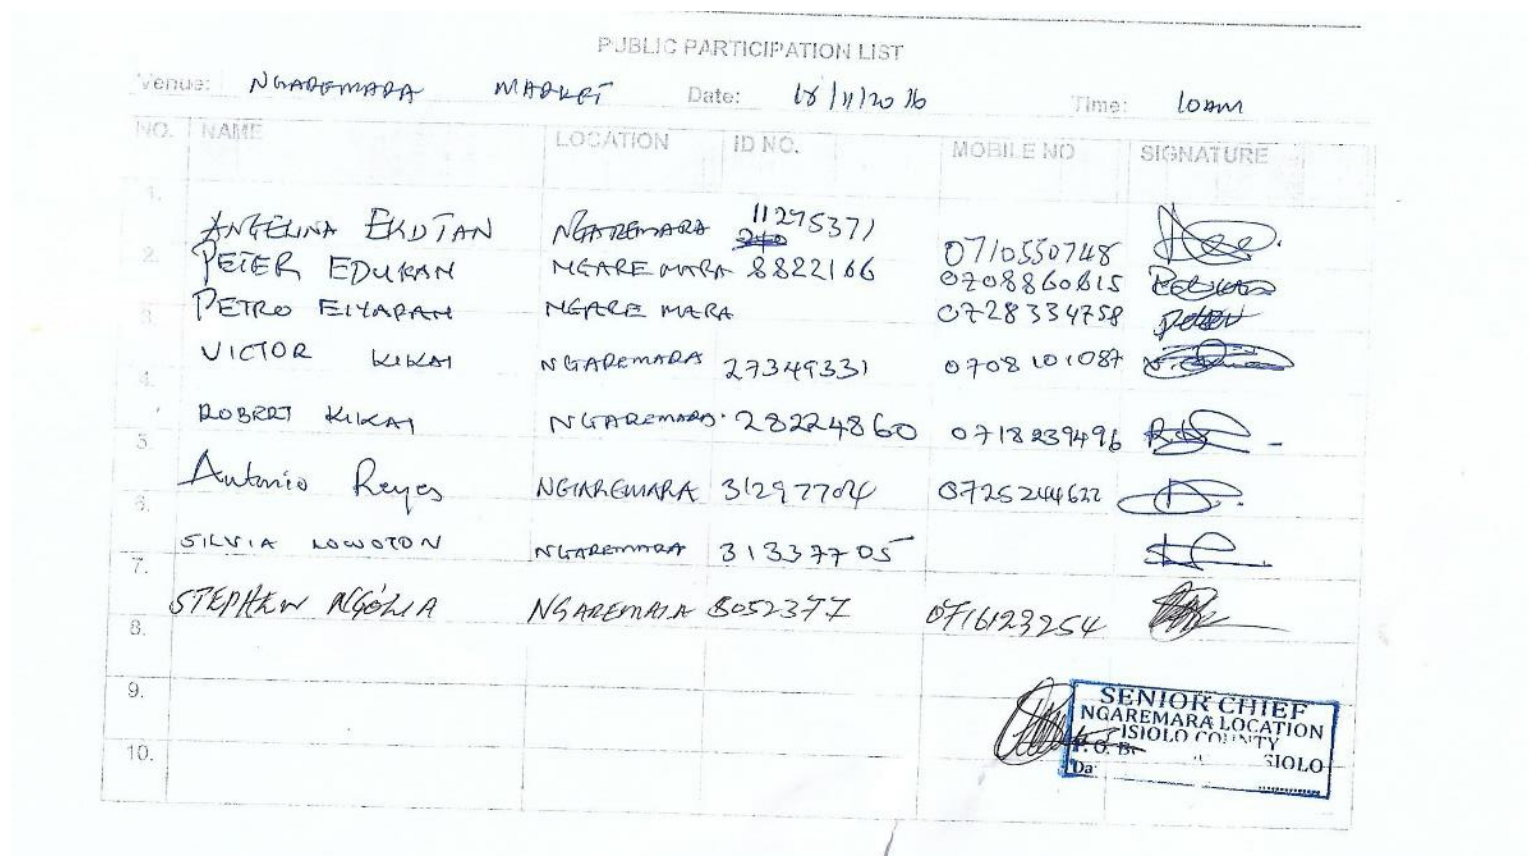 PUBLIC PARTICIPATION LIST
Venue: NGAREMARA MARKET Date: 18/11/2016 Time: 10am
NO. NAME LOCATION ID NO. MOBILE NO SIGNATURE
1. ANGELINA EKUTAN NGAREMARA 11295371 0710550748
2. PETER EDUKAN NGARE MARA 8822166 0708860615
3. PETRO EIYAPAN NGARE MARA 0728334758
4. VICTOR KIKAI NGAREMARA 27349331 0708101087
5. ROBERT KIKAI NGAREMARA 28224860 0718239496
6. Antonio Reyes NGAREMARA 31297704 0725244622
7. SILVIA LOWOTON NGAREMARA 31337705
8. STEPHEN NGOLIA NGAREMARA 8052377 0716123254
9.
10.
SENIOR CHIEF
NGAREMARA LOCATION
ISIOLO COUNTY
P. O. B SIOLO
Da